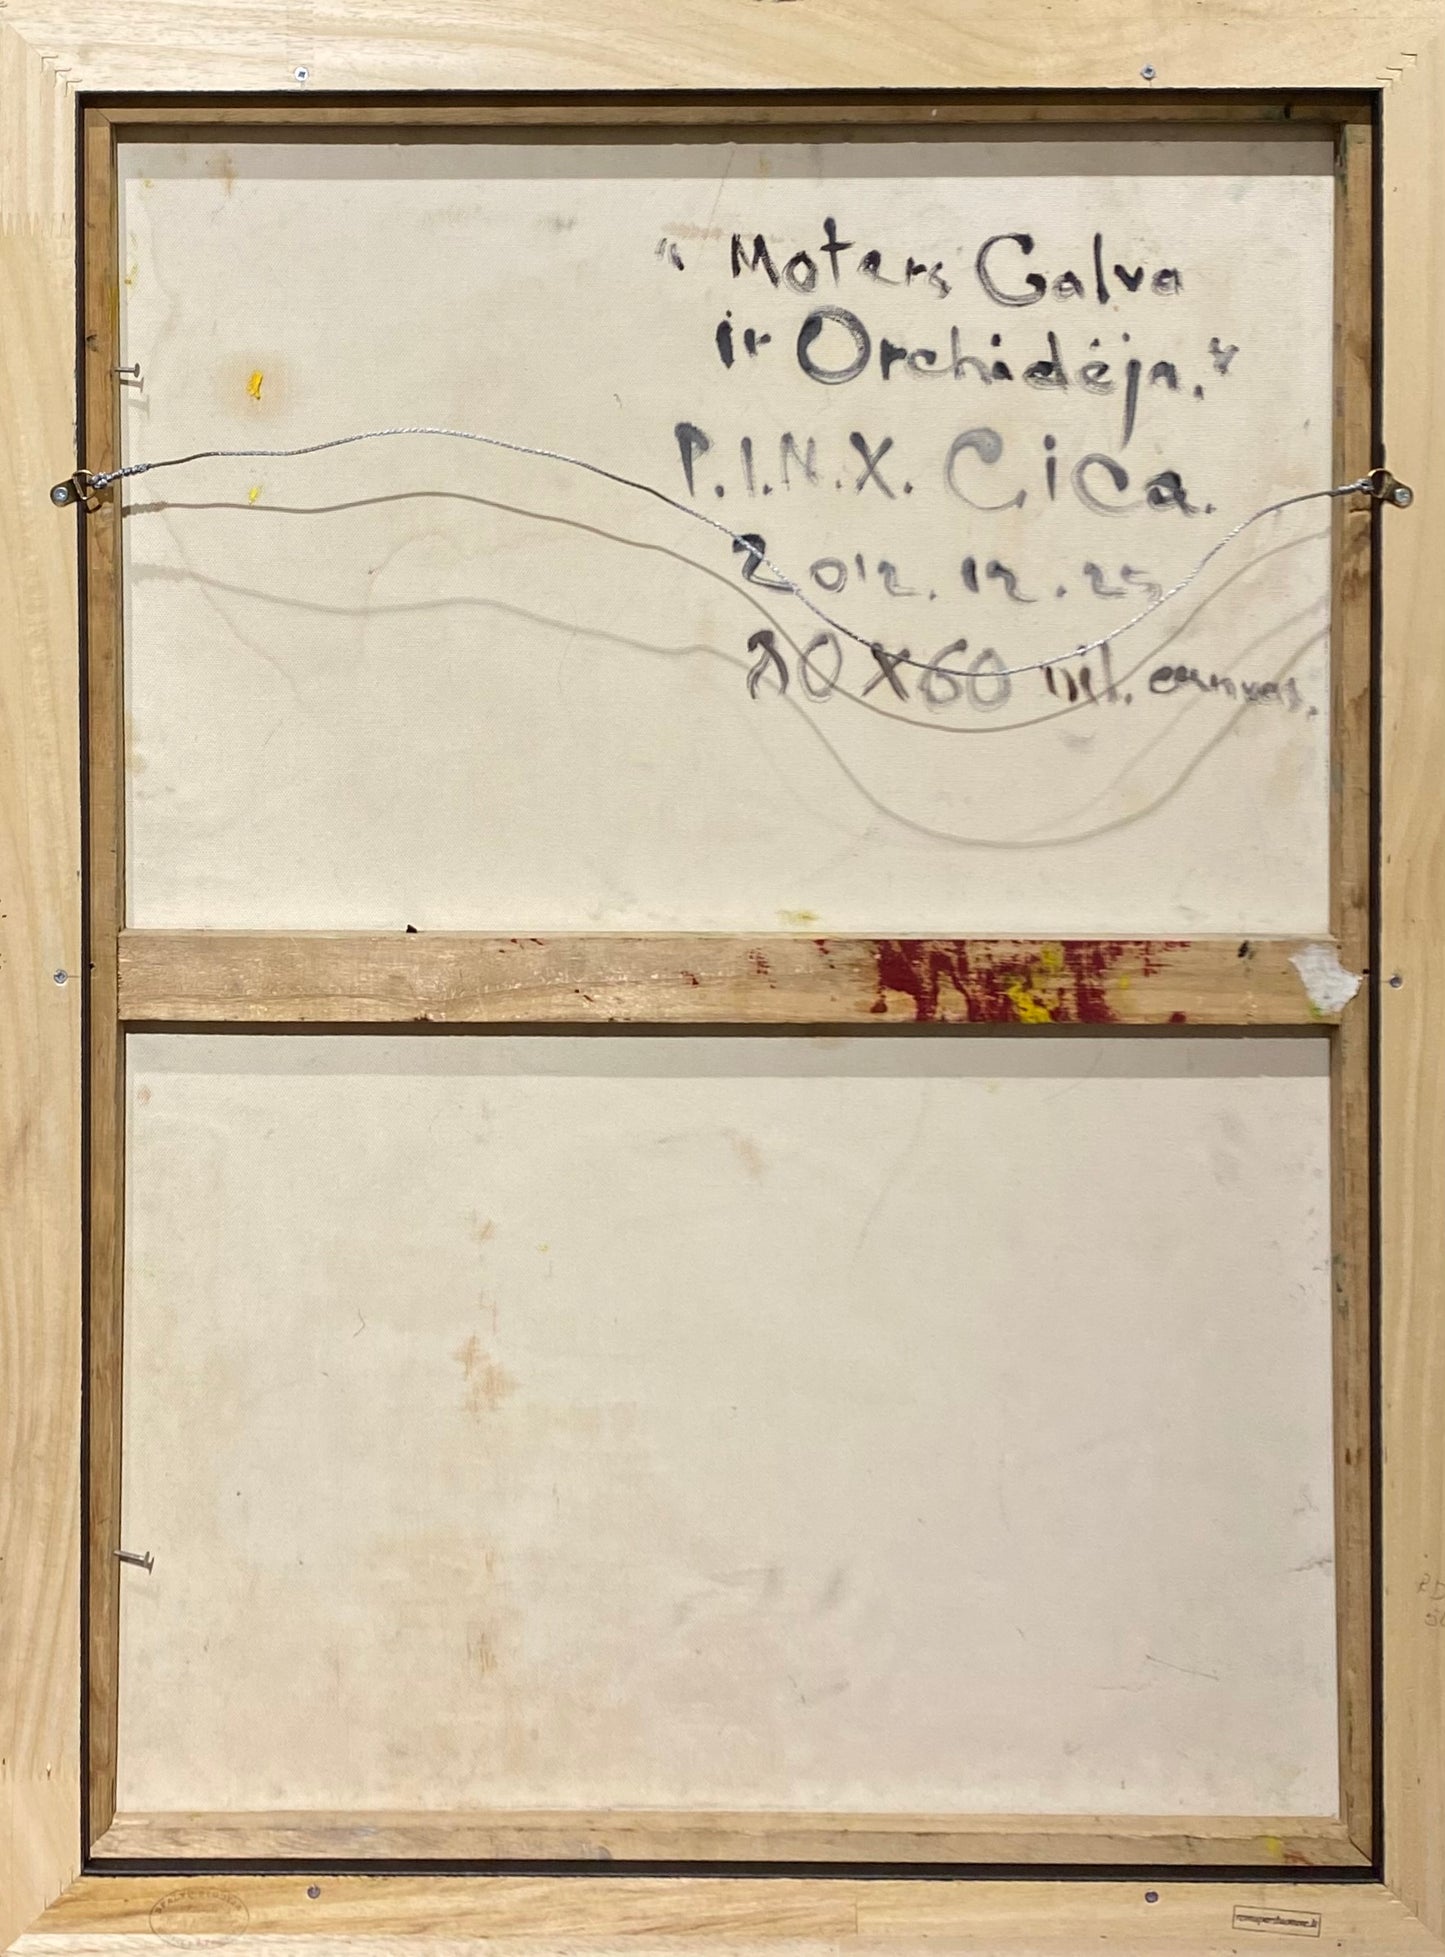 " Moters Galva
ir Orchidėja."
P.I.N.X. Cica.
2012.12.25
80X60 canvas.